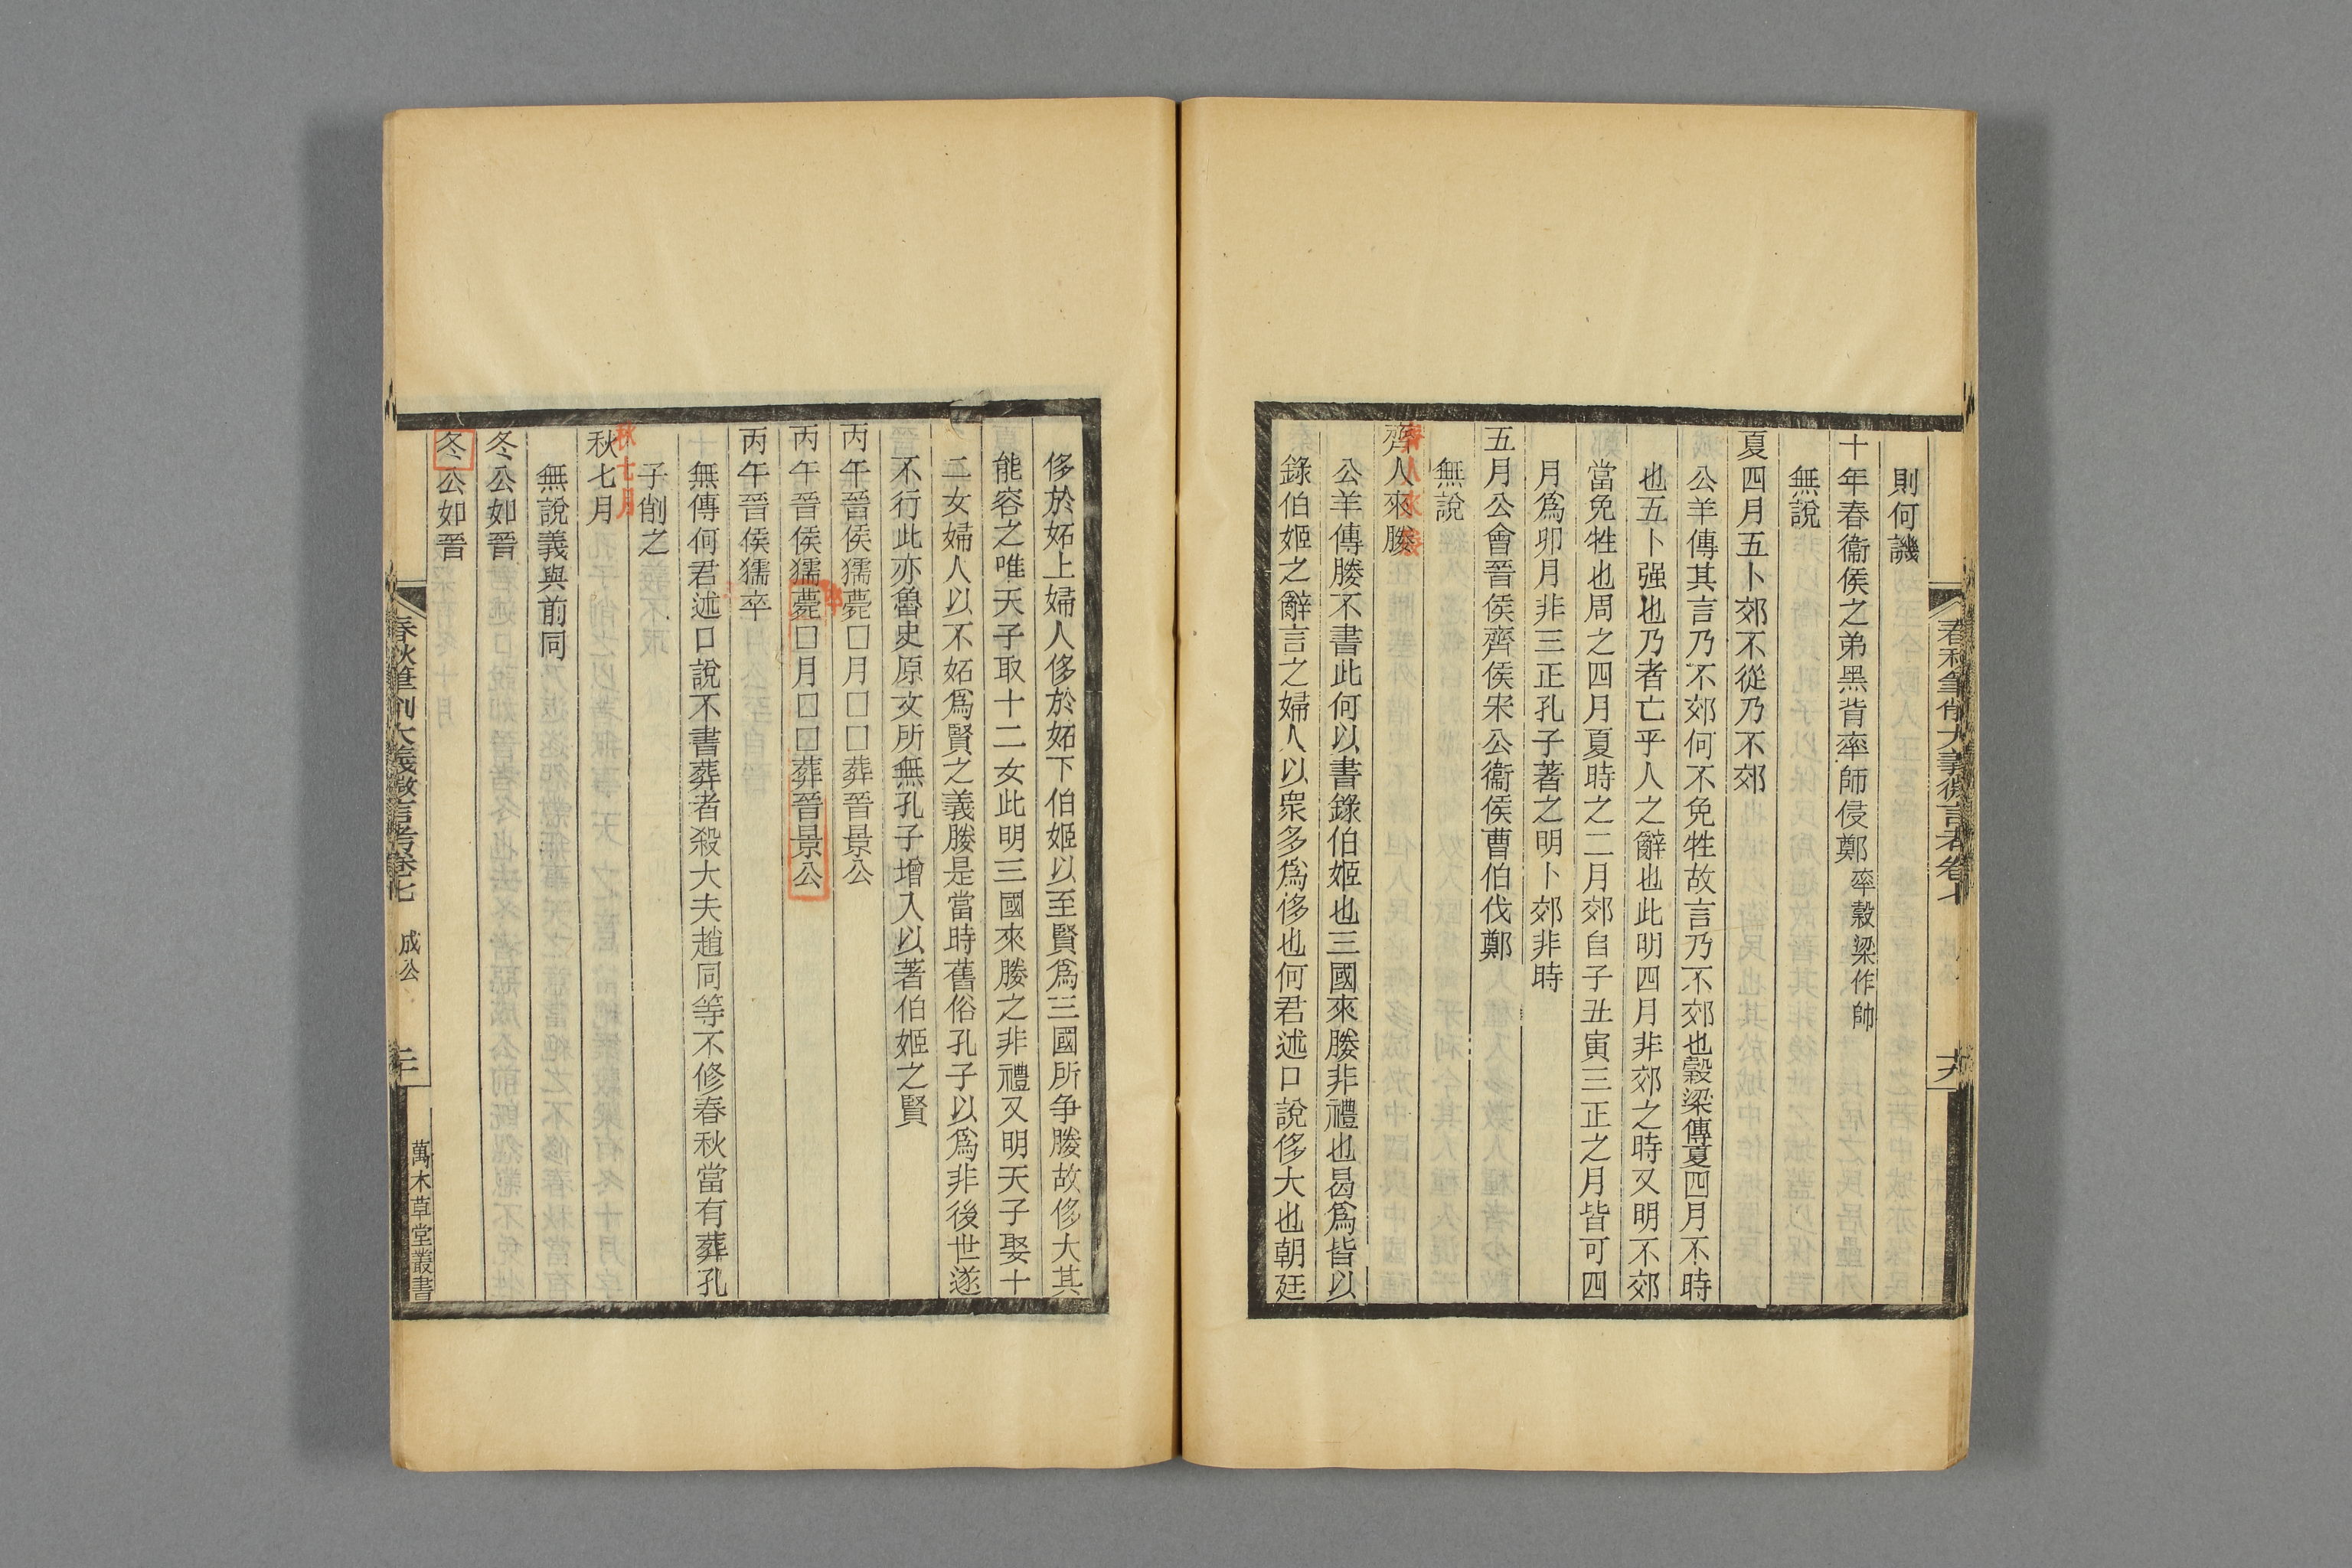 則何譏
十年春衞侯之弟黑背率師侵鄭率穀梁作帥
無說
夏四月五卜郊不從乃不郊
公羊傳其言乃不郊何不免牲故言乃不郊也穀梁傳夏四月不時
也五卜强也乃者亡乎人之辭也此明四月非郊之時又明不郊
當免牲也周之四月夏時之二月郊自子丑寅三正之月皆可四
月爲卯月非三正孔子著之明卜郊非時
五月公會晉侯齊侯宋公衞侯曹伯伐鄭
無說
齊人來媵
齊人來媵
公羊傳媵不書此何以書錄伯姬也三國來媵非禮也曷爲皆以
錄伯姬之辭言之婦人以眾多爲侈也何君述口說侈大也朝廷
春秋筆削大義微言考卷七
侈於妬上婦人侈於妬下伯姬以至賢爲三國所争媵故侈大其
能容之唯天子取十二女此明三國來媵之非禮又明天子娶十
二女婦人以不妬爲賢之義媵是當時舊俗孔子以爲非後世遂
不行此亦魯史原文所無孔子增入以著伯姬之賢
丙午晉侯獳薨囗月囗囗葬晉景公
丙午晉侯獳薨囗月囗囗葬晉景公
丙午晉侯獳卒
無傳何君述口說不書葬者殺大夫趙同等不修春秋當有葬孔
子削之
秋七月
秋七月
無說義與前同
冬公如晉
冬公如晉
春秋筆削大義微言考卷七 成公
萬木草堂叢書